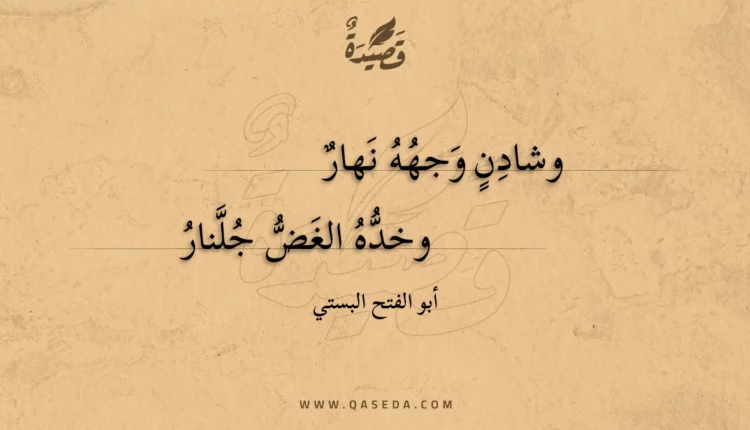 قَصِيدَةٌ
وشادِنٍ وَجهُهُ نَهارٌ
وخدُّهُ الغَضُّ جُلَّنارُ
أبو الفتح البستي
WWW.QASEDA.COM